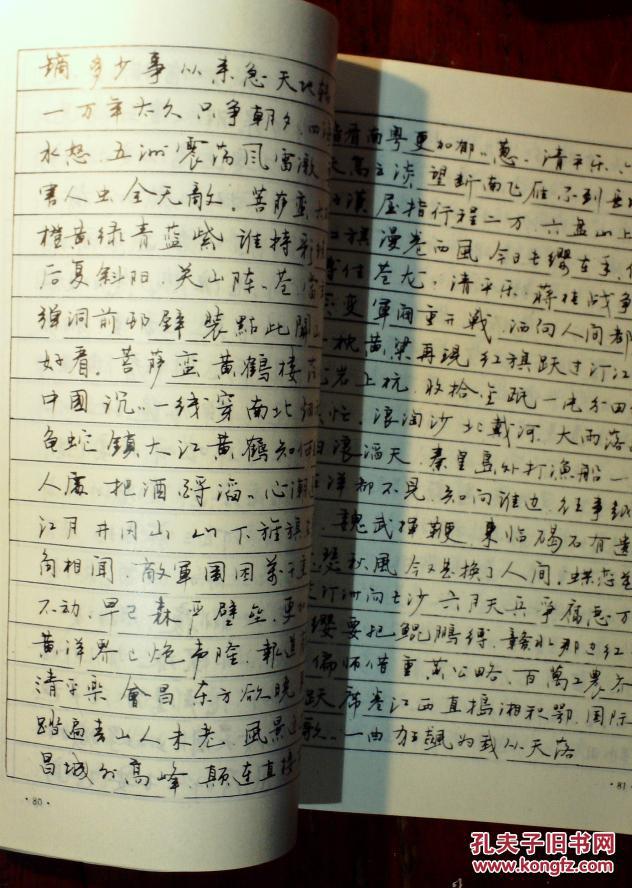 摘多少事从来急天地转
一万年太久只争朝夕四海
水怒五洲震荡风雷激
害人虫全无敌菩萨蛮大
橙黄绿青蓝紫谁持彩
后复斜阳关山阵〻苍当
弹洞前邨壁装點此関
好看菩萨蛮黄鹤楼茫
中國沉〻一线穿南北烟
龟蛇鎮大江黄鹤知何
人處把酒酹滔〻心潮逐
江月井冈山山下旌旗
角相闻敵軍围困萬千
不动早已森严壁垒更
黄洋界上炮声隆報道
清平樂會昌东方欲晓
踏遍青山人未老風景
昌城外高峰颠连直接
·80·
看南粤更加郁〻葱清平乐六
天高云淡望断南飞雁不到長
漢屈指行程二万六盘山上
红旗漫卷西風今日長缨在手
縛住苍龙清平乐蒋桂战争
变軍閥重开戰洒向人间都
一枕黄粱再现红旗跃过汀江
岩上杭收拾金瓯一片分田
忙浪淘沙北戴河大雨落
滔天秦皇島外打漁船一
洋都不見知向谁边往事越
魏武揮鞭東临碣石有遗
瑟秋風今又是换了人间蝶恋
汀洲向長沙六月天兵争腐恶万
缨要把鯤鵬缚贛水那边红
偏师借重黄公略百萬工農
跃席卷江西直搗湘和鄂国际
歌一曲狂飆为我从天落
·81·
孔夫子旧书网
www.kongfz.com